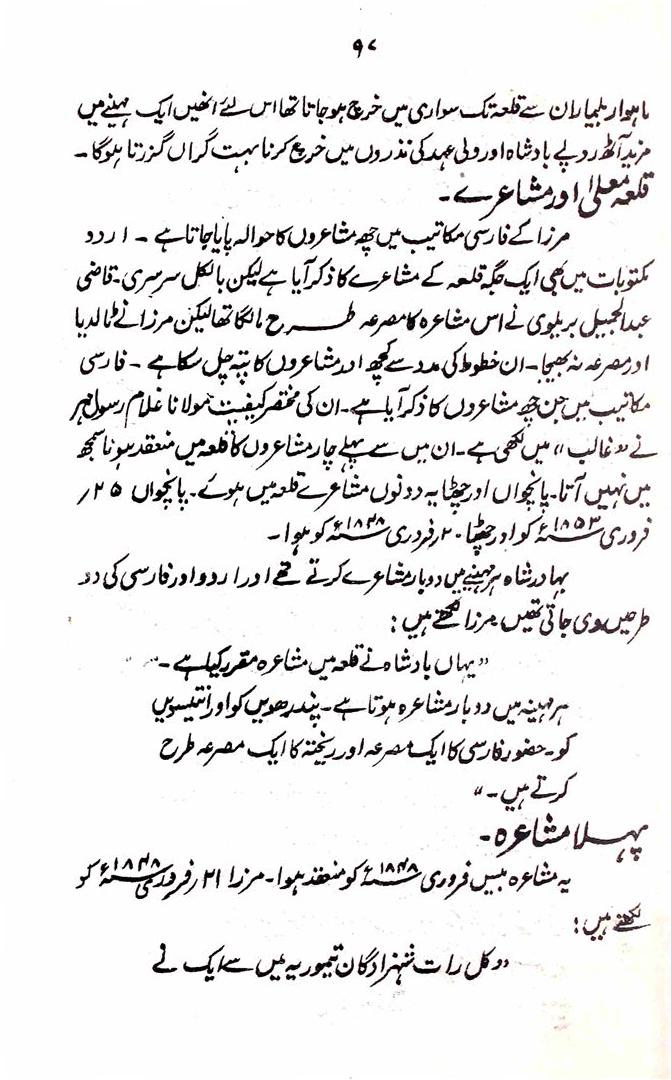 ۹۷
ماہوار بلیماران سے قلعہ تک سواری میں خرچ ہوجاتا تھا اس لئے انھیں ایک مہینے میں
مزید آٹھ روپے بادشاہ اور ولی عہد کی نذروں میں خرچ کرنا بہت گراں گزرتا ہوگا۔
قلعہ معلیٰ اور مشاعرے۔
مرزا کے فارسی مکاتیب میں چھ مشاعروں کا حوالہ پایا جاتا ہے۔ اردو
مکتوبات میں بھی ایک جگہ قلعہ کے مشاعرے کا ذکر آیا ہے لیکن بالکل سرسری۔ قاضی
عبدالجمیل بریلوی نے اس مشاعرہ کا مصرعہ طرح مانگا تھا لیکن مرزا نے ٹالدیا
اور مصرعہ نہ بھیجا۔ ان خطوط کی مدد سے کچھ اور مشاعروں کا پتہ چل سکا ہے۔ فارسی
مکاتیب میں جن چھ مشاعروں کا ذکر آیا ہے۔ ان کی مختصر کیفیت مولانا غلام رسول مہر
نے "غالب" میں لکھی ہے۔ ان میں سے پہلے چار مشاعروں کا قلعہ میں منعقد ہونا سمجھ
میں نہیں آتا۔ پانچواں اور چھٹا یہ دونوں مشاعرے قلعہ میں ہوئے۔ پانچواں ۲۵ر
فروری ۱۸۵۳ء کو اور چھٹا ۲۰ر فروری ۱۸۴۸ء کو ہوا۔
بہادر شاہ ہر مہینے میں دوبار مشاعرے کرتے تھے اور اردو اور فارسی کی دو
طرحیں دی جاتی تھیں مرزا لکھتے ہیں:
"یہاں بادشاہ نے قلعہ میں مشاعرہ مقرر کیا ہے۔
ہر مہینہ میں دوبار مشاعرہ ہوتا ہے۔ پندرھویں کو اور انتیسویں
کو۔ حضور فارسی کا ایک مصرعہ اور ریختہ کا ایک مصرعہ طرح
کرتے ہیں۔"
پہلا مشاعرہ۔
یہ مشاعرہ بیس فروری ۱۸۴۸ء کو منعقد ہوا۔ مرزا ۲۱ر فروری ۱۸۴۸ء کو
لکھتے ہیں:
"کل رات شہزادگان تیموریہ میں سے ایک نے